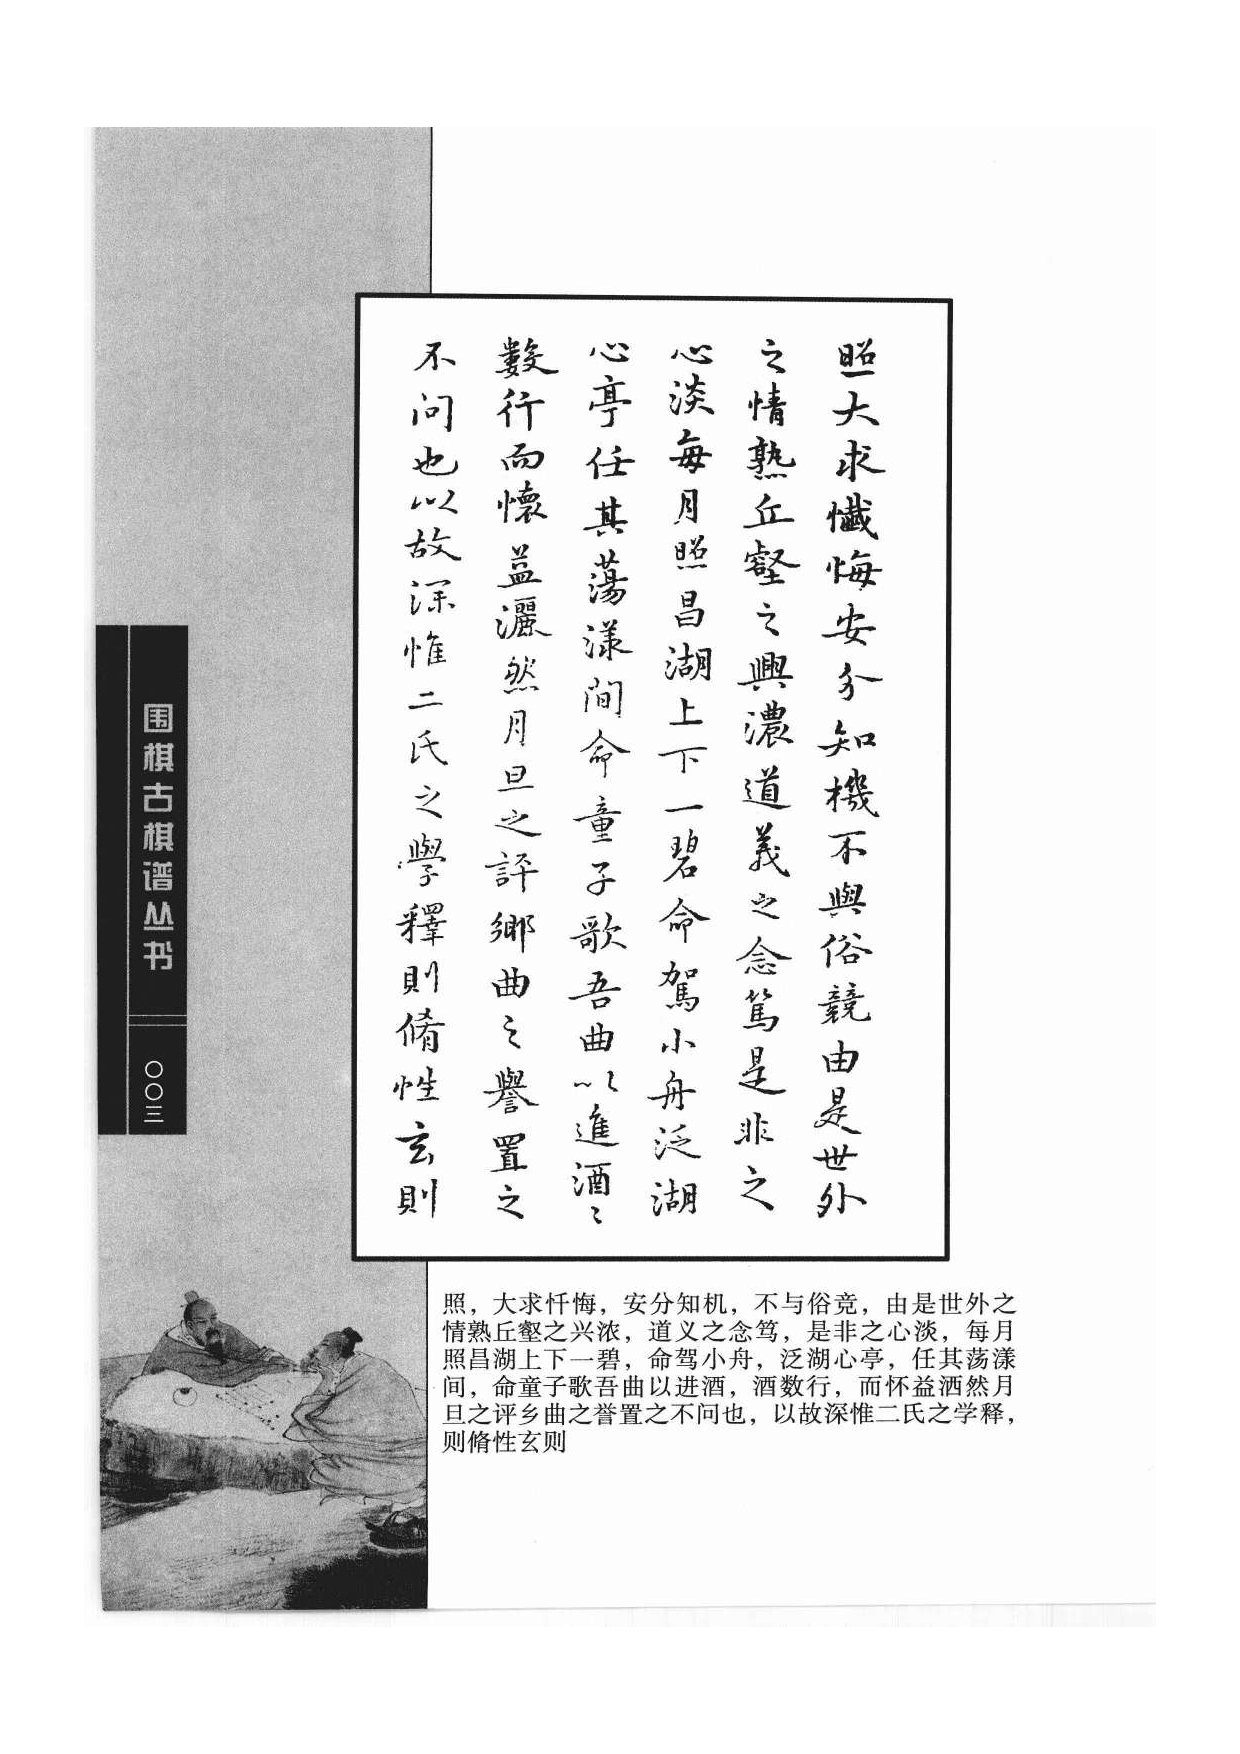 照大求懺悔安分知機不與俗競由是世外
之情熟丘壑之興濃道義之念篤是非之
心淡每月照昌湖上下一碧命駕小舟泛湖
心亭任其蕩漾間命童子歌吾曲以進酒〻
數行而懷益灑然月旦之評鄉曲之譽置之
不問也以故深惟二氏之學釋則脩性玄則
围棋古棋谱丛书
〇〇三
照，大求忏悔，安分知机，不与俗竞，由是世外之
情熟丘壑之兴浓，道义之念笃，是非之心淡，每月
照昌湖上下一碧，命驾小舟，泛湖心亭，任其荡漾
间，命童子歌吾曲以进酒，酒数行，而怀益洒然月
旦之评乡曲之誉置之不问也，以故深惟二氏之学释，
则脩性玄则